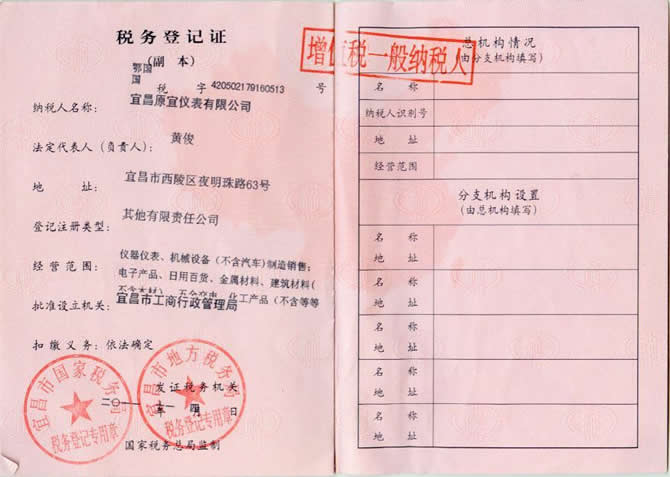 税务登记证
(副 本)
鄂国
国 税 字 420502179160513 号
纳税人名称: 宜昌原宜仪表有限公司
法定代表人(负责人): 黄俊
地 址: 宜昌市西陵区夜明珠路63号
登记注册类型: 其他有限责任公司
经营范围: 仪器仪表、机械设备(不含汽车)制造销售;
电子产品、日用百货、金属材料、建筑材料(
不含木材)、五金交电、化工产品(不含等等
批准设立机关: 宜昌市工商行政管理局
扣缴义务: 依法确定
宜昌市国家税务局
税务登记专用章
宜昌市地方税务局
税务登记专用章
发证税务机关
二〇一一年十一月四日
国家税务总局监制
增值税一般纳税人
总机构情况
(由分支机构填写)
名 称
纳税人识别号
地 址
经营范围
分支机构设置
(由总机构填写)
名 称
地 址
名 称
地 址
名 称
地 址
名 称
地 址
名 称
地 址